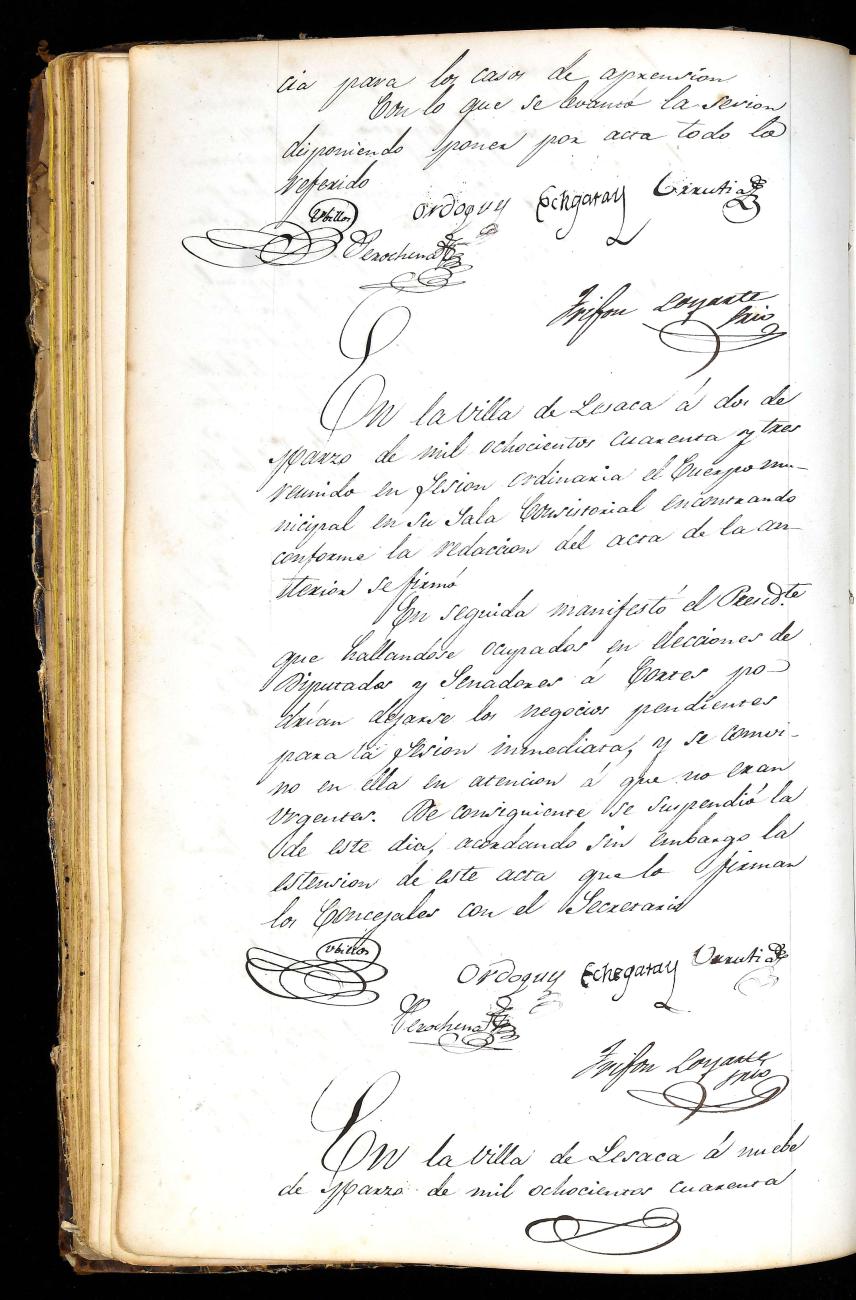 cia para los casos de aprension
Con lo que se levantó la sesion
disponiendo poner por acta todo lo
referido
Ubillos Ordoquy Echegaray Urrutia
Perochena
Trifon Loyarte
Srio
En la villa de Lesaca á dos de
Marzo de mil ochocientos cuarenta y tres
reunido en sesion ordinaria el Cuerpo mu-
nicipal en su Sala Consistorial encontrando
conforme la redaccion del acta de la an-
tterior se firmó
En seguida manifestó el Presidte
que hallandose ocupados en elecciones de
Diputados y Senadores á Cortes po-
drian dejarse los negocios pendientes
para la sesion immediata, y se convi-
no en ella en atencion á que no eran
urgentes. De consiguiente se suspendió la
de este dia, acordando sin embargo la
estension de este acta que lo firman
los Concejales con el Secretario
Ubillos Ordoquy Echegaray Urrutia
Perochena
Trifon Loyarte
Srio
En la villa de Lesaca á nuebe
de Marzo de mil ochocientos cuarenta